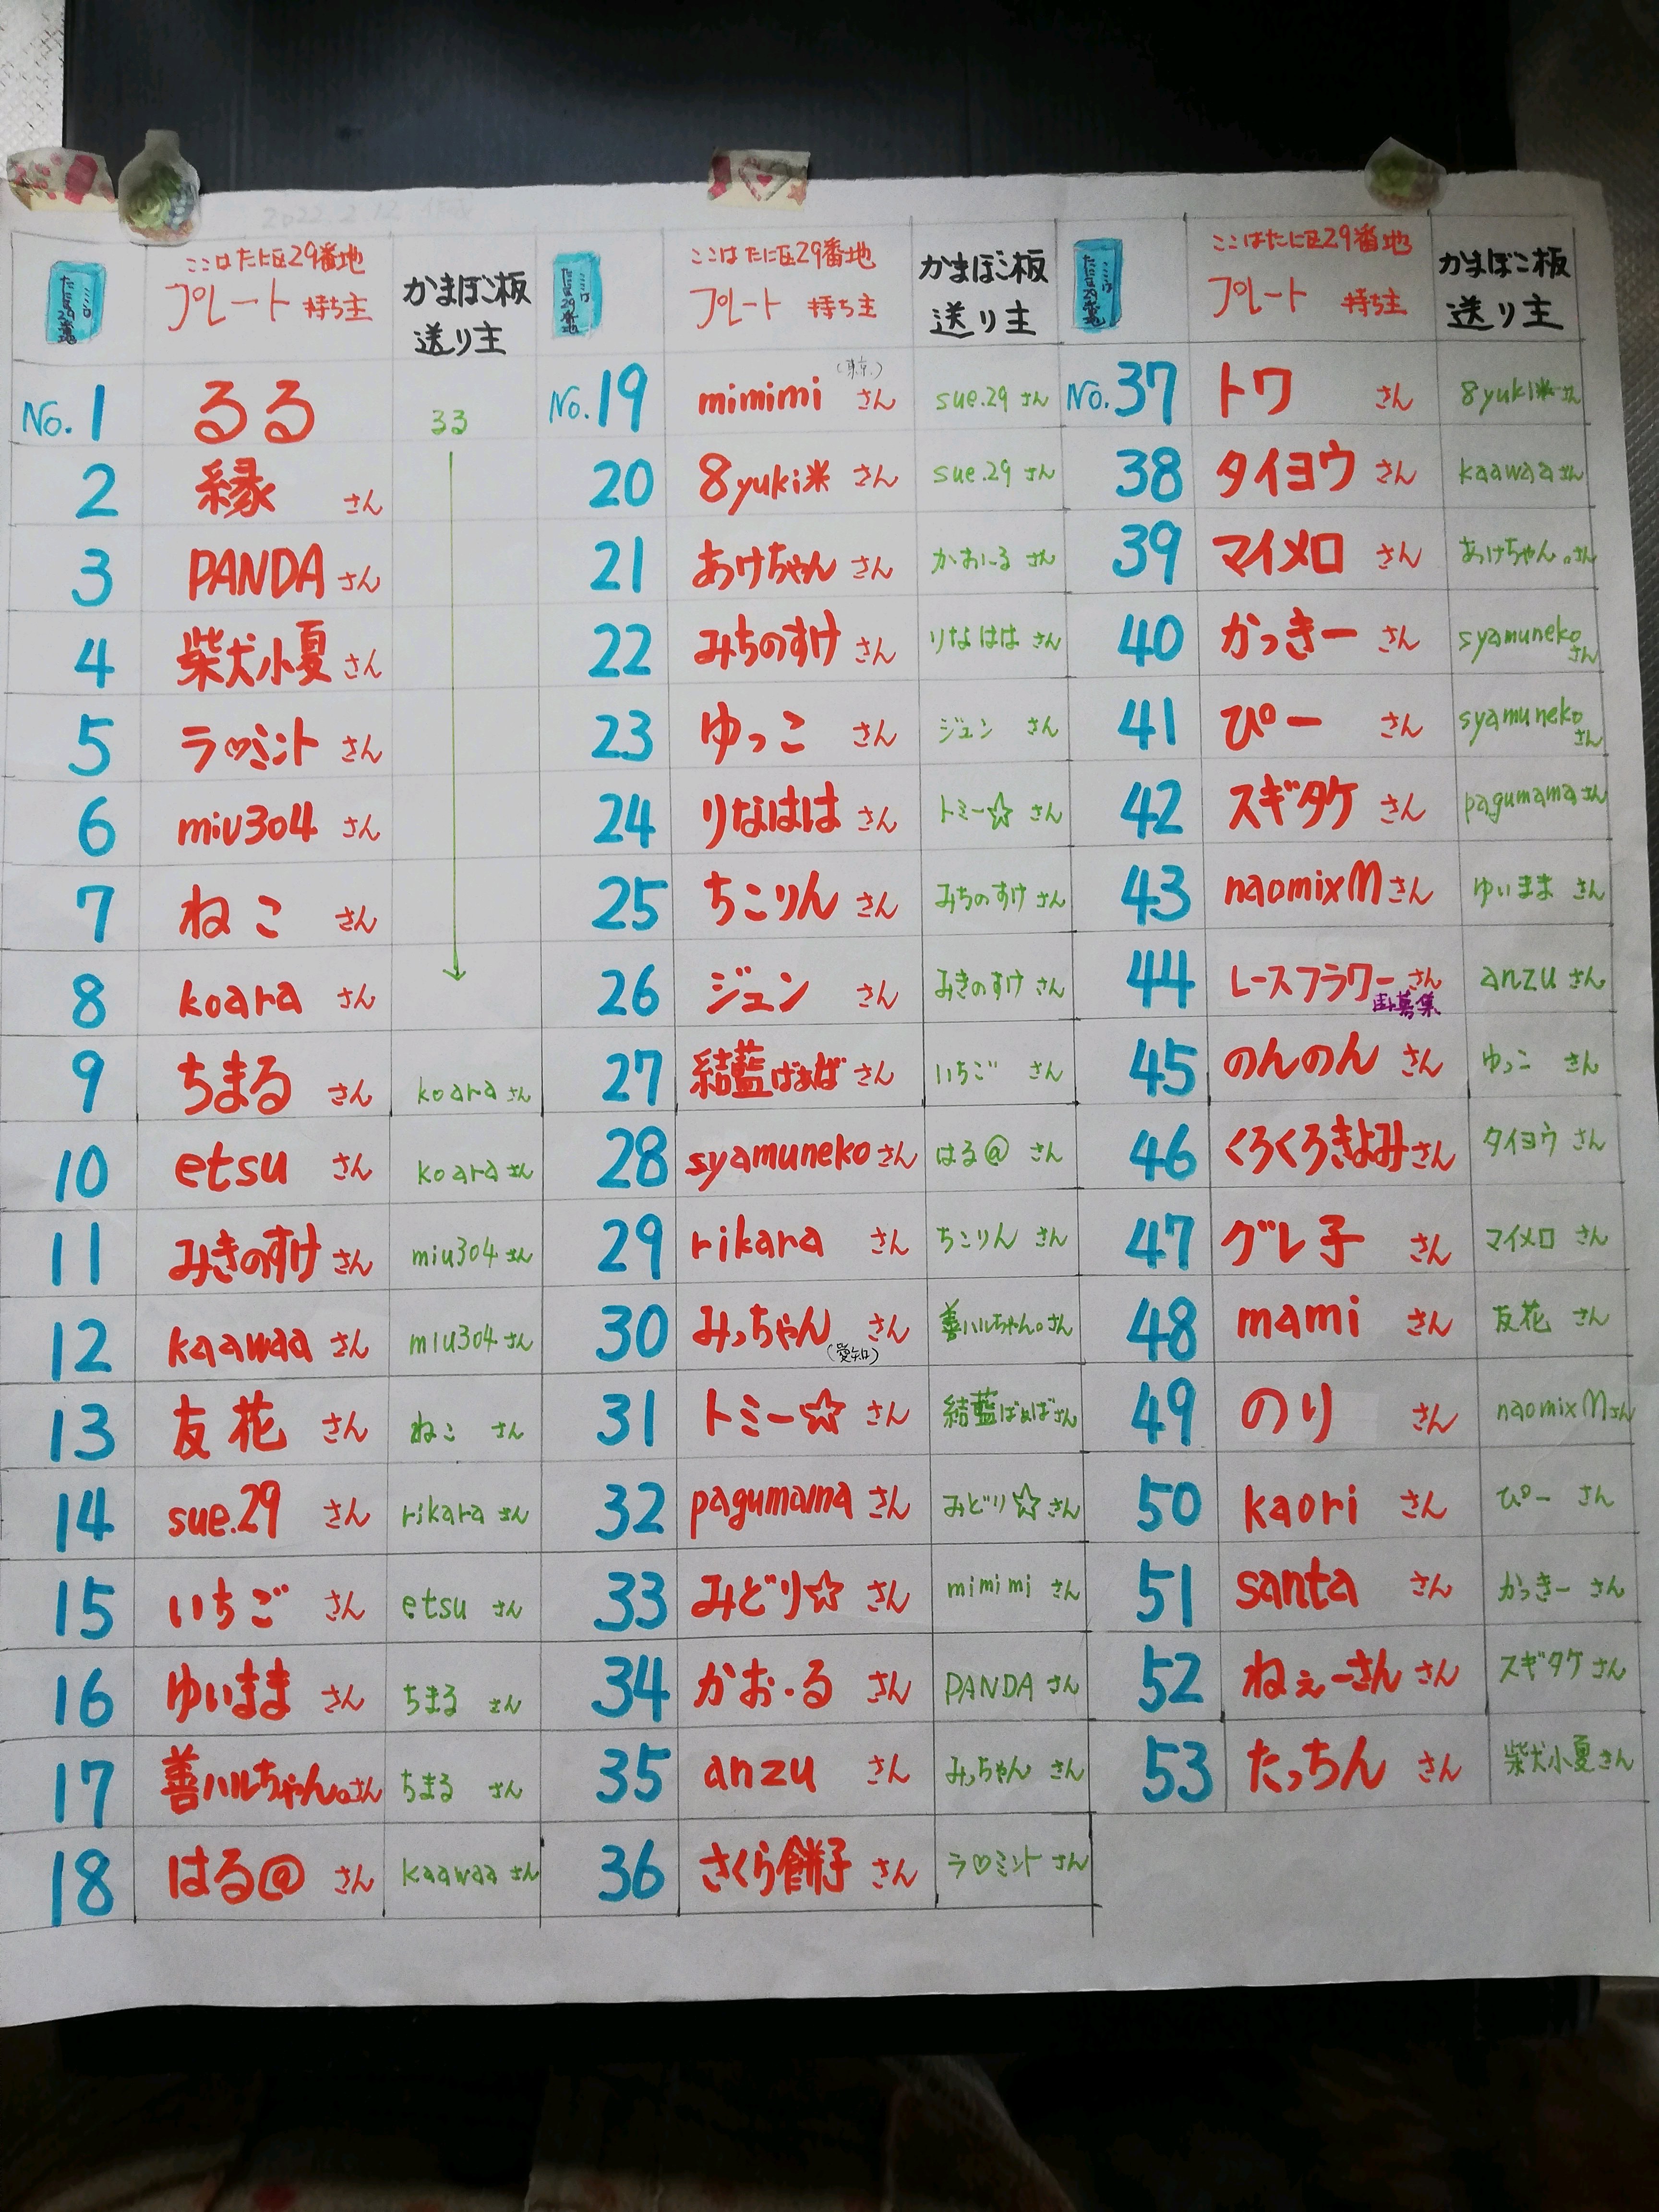 2022.2.12 作成
ここはたに区29番地
ここはたに区29番地 プレート 持ち主
かまぼこ板 送り主
ここはたに区29番地
ここはたに区29番地 プレート 持ち主
かまぼこ板 送り主
ここはたに区29番地
ここはたに区29番地 プレート 持ち主
かまぼこ板 送り主
No.1 るる るる
2 縁 さん
3 PANDA さん
4 柴犬小夏 さん
5 ラ♡ミント さん
6 miu304 さん
7 ねこ さん
8 koara さん
9 ちまる さん koara さん
10 etsu さん koara さん
11 みきのすけ さん miu304 さん
12 kaawaa さん miu304 さん
13 友花 さん ねこ さん
14 sue.29 さん rikara さん
15 いちご さん etsu さん
16 ゆいまま さん ちまる さん
17 善ハルちゃん。さん ちまる さん
18 はる@ さん kaawaa さん
No.19 mimimi (東京) さん sue.29 さん
20 8yuki* さん sue.29 さん
21 あけちゃん さん かお・る さん
22 みちのすけ さん りなはは さん
23 ゆっこ さん ジュン さん
24 りなはは さん トミー☆ さん
25 ちこりん さん みちのすけ さん
26 ジュン さん みきのすけ さん
27 結藍ばぁば さん いちご さん
28 syamuneko さん はる@ さん
29 rikara さん ちこりん さん
30 みっちゃん さん (愛知) 善ハルちゃん。さん
31 トミー☆ さん 結藍ばぁば さん
32 pagumama さん みどり☆ さん
33 みどり☆ さん mimimi さん
34 かお・る さん PANDA さん
35 anzu さん みっちゃん さん
36 さくら餅子 さん ラ♡ミント さん
No.37 トワ さん 8yuki* さん
38 タイヨウ さん kaawaa さん
39 マイメロ さん あけちゃん。さん
40 かっきー さん syamuneko さん
41 ぴー さん syamuneko さん
42 スギタケ さん pagumama さん
43 naomixM さん ゆいまま さん
44 レースフラワー さん 募集 anzu さん
45 のんのん さん ゆっこ さん
46 くろくろきよみ さん タイヨウ さん
47 グレ子 さん マイメロ さん
48 mami さん 友花 さん
49 のり さん naomixM さん
50 kaori さん ぴー さん
51 santa さん かっきー さん
52 ねぇーさん さん スギタケ さん
53 たっちん さん 柴犬小夏 さん